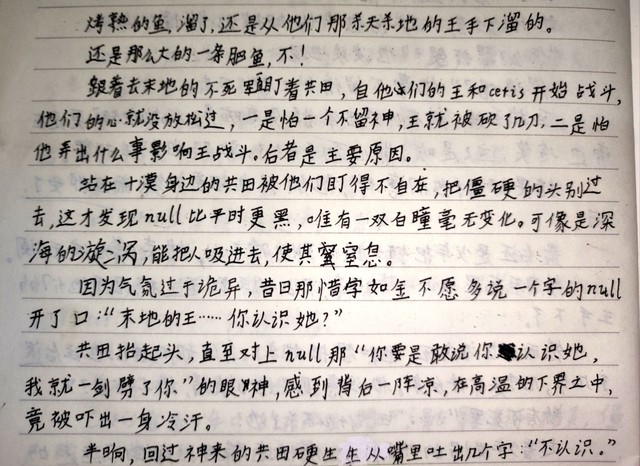 烤熟的鱼,溜了,还是从他们那杀天杀地的王手下溜的。
还是那么大的一条肥鱼,不!
跟着去末地的不死军团盯着共田,自他们的王和cetis开始战斗,
他们的心就没放松过,一是怕一个不留神,王就被砍了几刀,二是怕
他弄出什么事影响王战斗。后者是主要原因。
站在十漠身边的共田被他们盯得不自在,把僵硬的头别过
去,这才发现null比平时更黑,唯有一双白瞳毫无变化。可像是深
海的漩涡,能把人吸进去,使其窒息。
因为气氛过于诡异,昔日那惜字如金不愿多说一个字的null
开了口:“末地的王……你认识她?”
共田抬起头,直至对上null那“你要是敢说你认识她,
我就一剑劈了你”的眼神,感到背后一阵凉,在高温的下界之中,
竟被吓出一身冷汗。
半晌,回过神来的共田硬生生从嘴里吐出几个字:“不认识。”